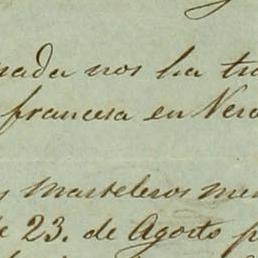 nada nos ha tra
francesa en Vera
y Masteleros mer
e 23. de Agosto p